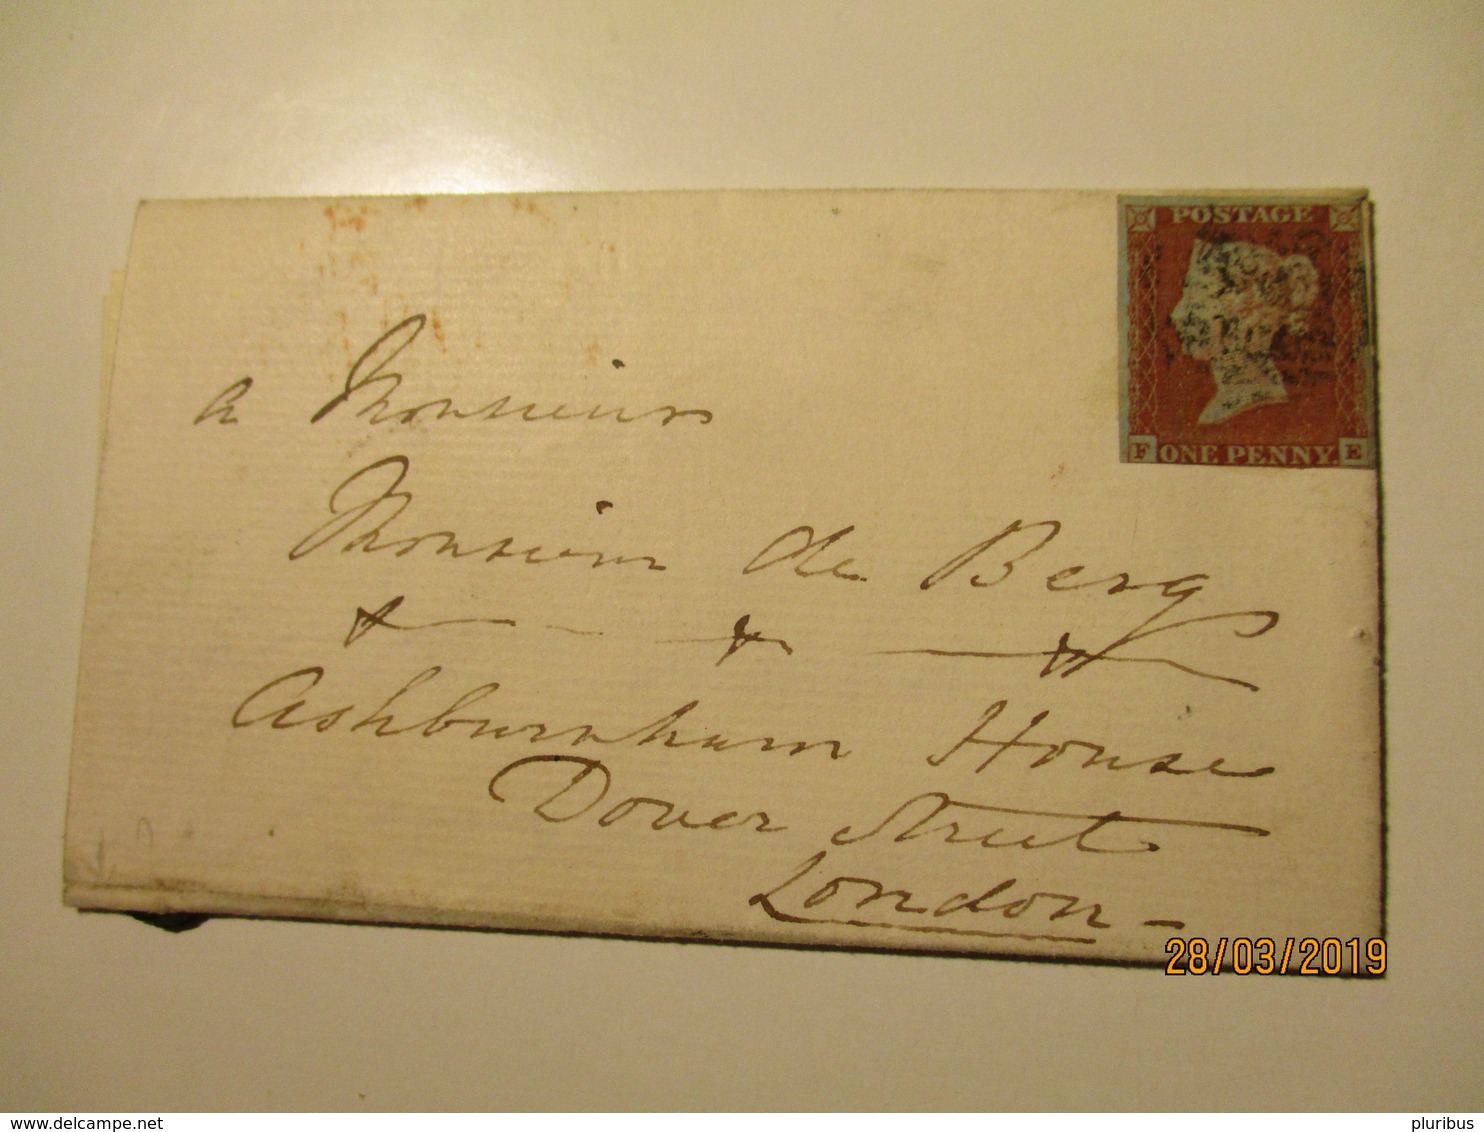 POSTAGE
F ONE PENNY. E
a Monsieur
Monsieur de Berg
Ashburnham House
Dover Street
London -
28/03/2019
delcampe.net
pluribus